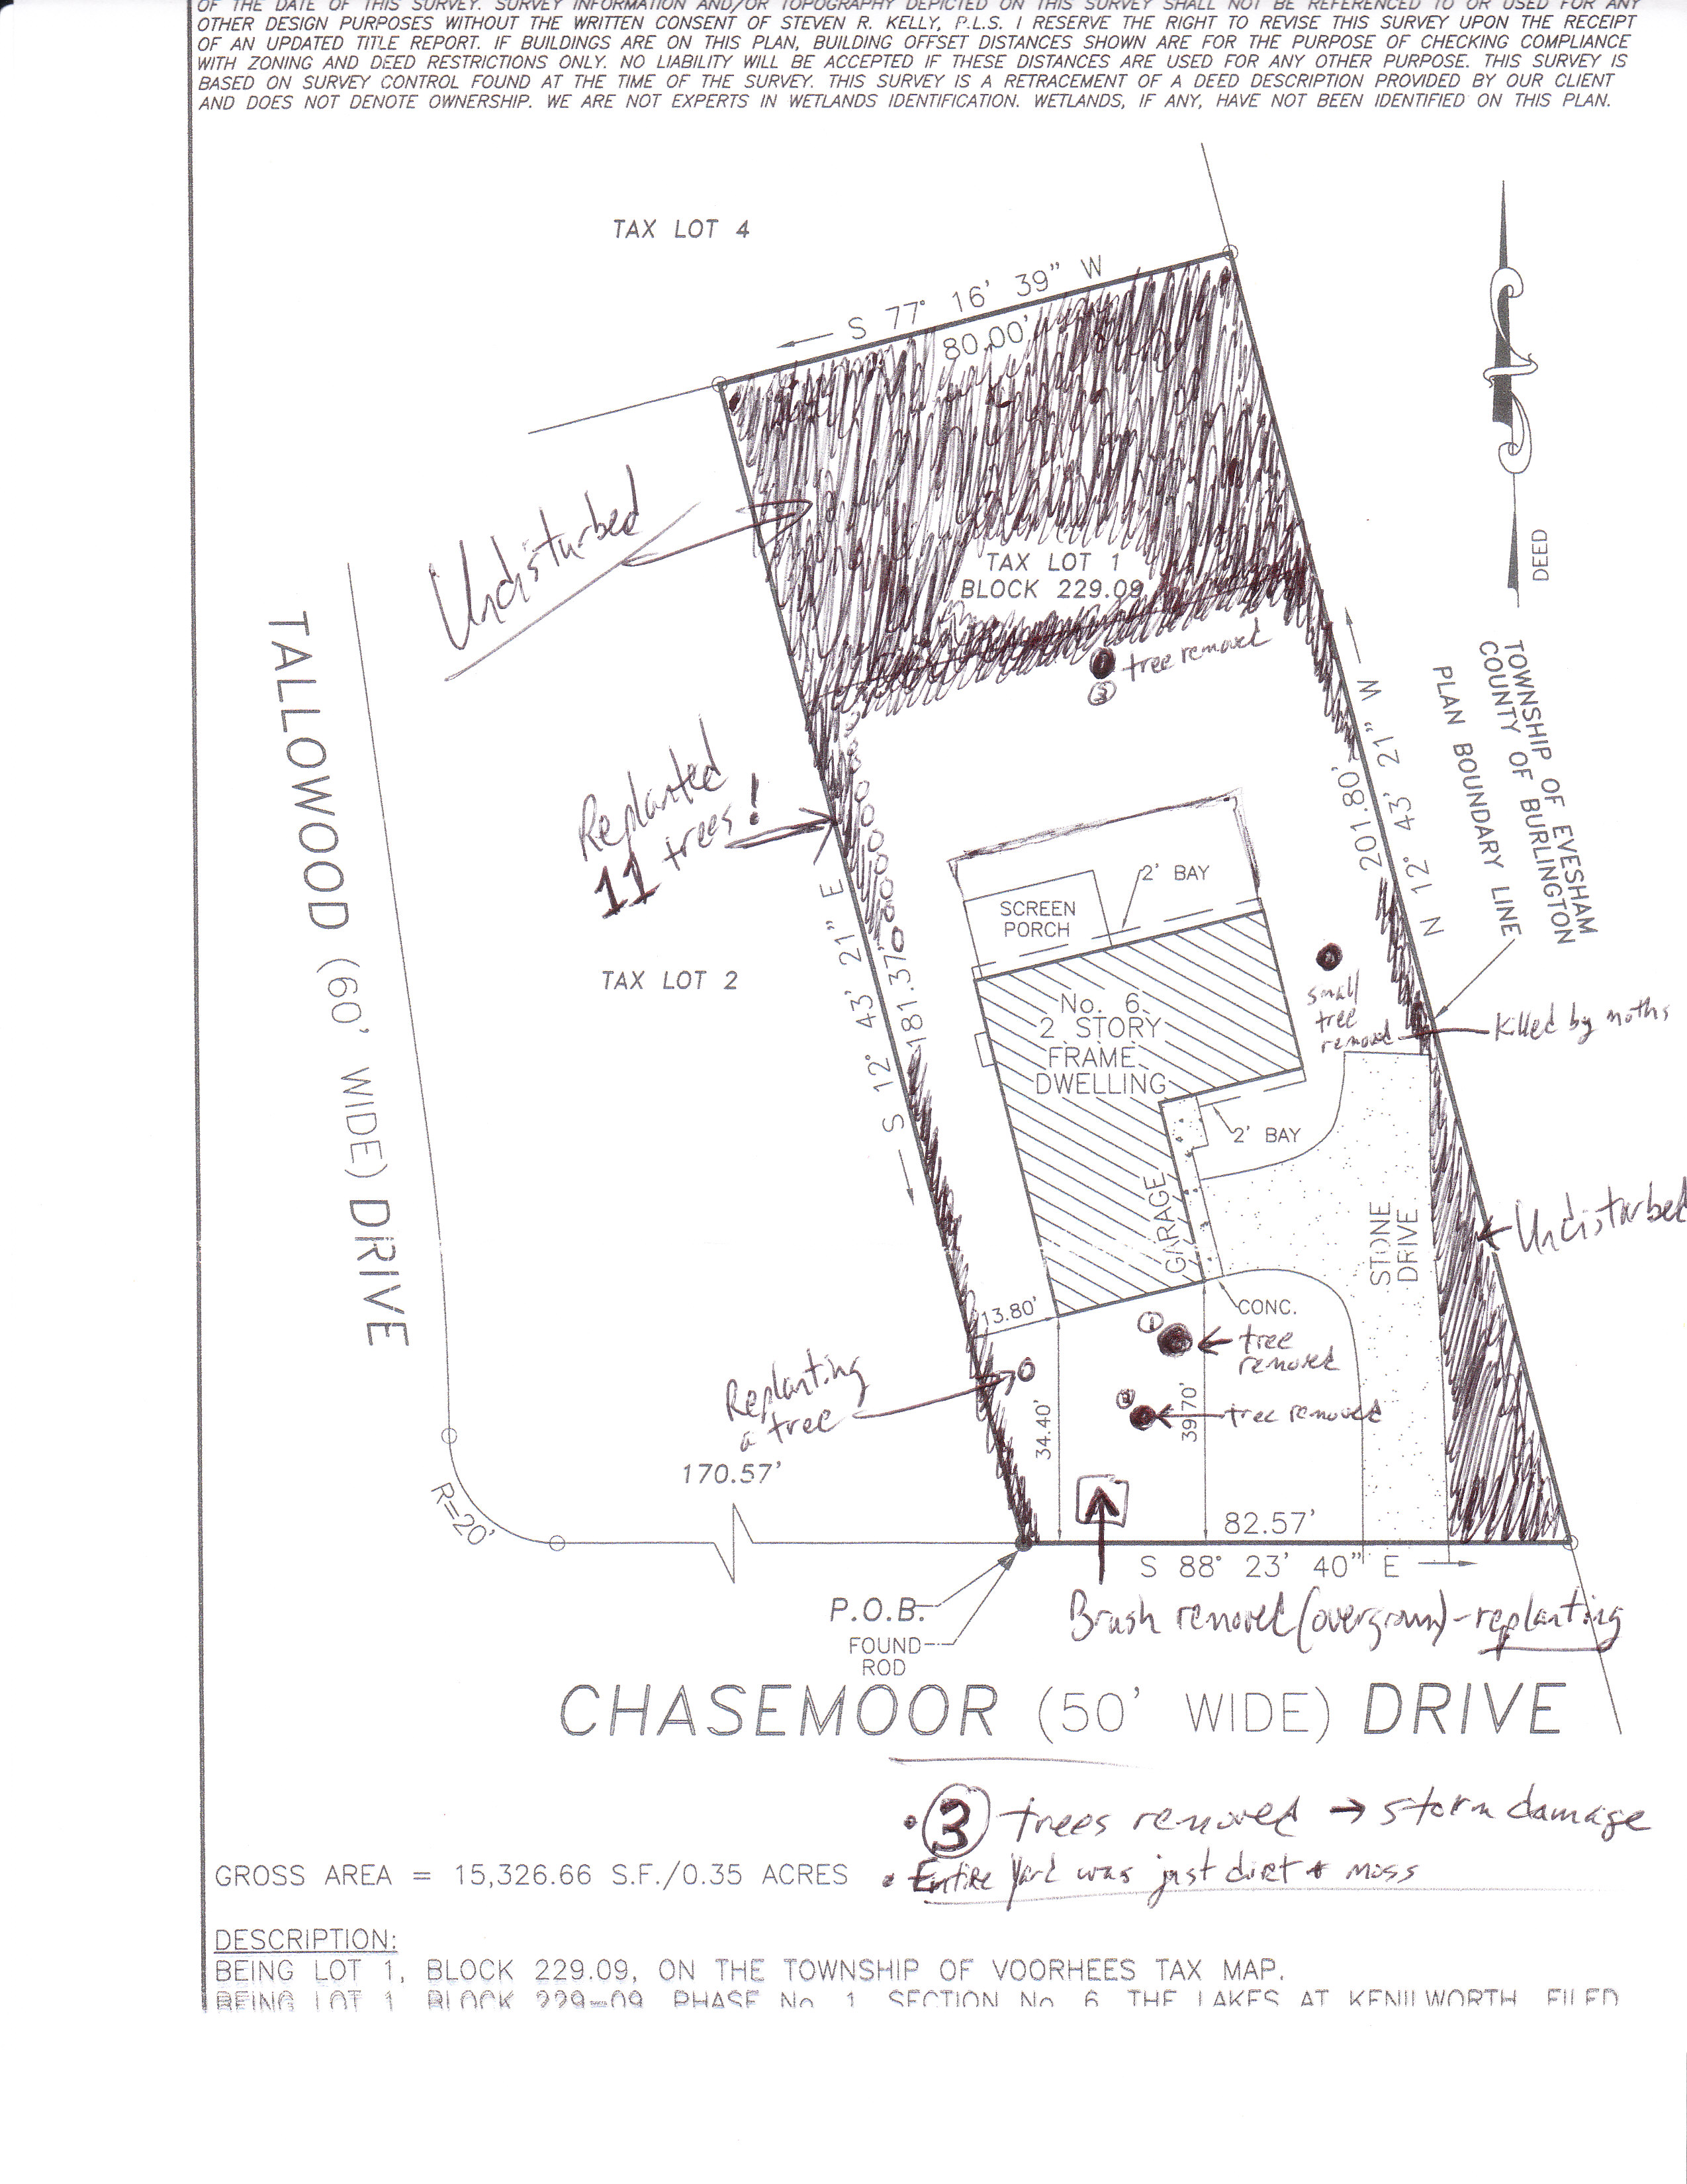 OF THE DATE OF THIS SURVEY. SURVEY INFORMATION AND/OR TOPOGRAPHY DEPICTED ON THIS SURVEY SHALL NOT BE REFERENCED TO OR USED FOR ANY
OTHER DESIGN PURPOSES WITHOUT THE WRITTEN CONSENT OF STEVEN R. KELLY, P.L.S. I RESERVE THE RIGHT TO REVISE THIS SURVEY UPON THE RECEIPT
OF AN UPDATED TITLE REPORT. IF BUILDINGS ARE ON THIS PLAN, BUILDING OFFSET DISTANCES SHOWN ARE FOR THE PURPOSE OF CHECKING COMPLIANCE
WITH ZONING AND DEED RESTRICTIONS ONLY. NO LIABILITY WILL BE ACCEPTED IF THESE DISTANCES ARE USED FOR ANY OTHER PURPOSE. THIS SURVEY IS
BASED ON SURVEY CONTROL FOUND AT THE TIME OF THE SURVEY. THIS SURVEY IS A RETRACEMENT OF A DEED DESCRIPTION PROVIDED BY OUR CLIENT
AND DOES NOT DENOTE OWNERSHIP. WE ARE NOT EXPERTS IN WETLANDS IDENTIFICATION. WETLANDS, IF ANY, HAVE NOT BEEN IDENTIFIED ON THIS PLAN.
TAX LOT 4
S 77° 16' 39" W
80.00'
DEED
Undisturbed
TAX LOT 1
BLOCK 229.09
tree removed
3
TOWNSHIP OF EVESHAM
COUNTY OF BURLINGTON
PLAN BOUNDARY LINE
N 12° 43' 21" W
201.80'
TALLOWOOD (60' WIDE) DRIVE
Replanted
11 trees!
2' BAY
SCREEN
PORCH
TAX LOT 2
S 12° 43' 21" E
181.37'
No. 6
2 STORY
FRAME
DWELLING
small
tree
removed
Killed by moths
2' BAY
GARAGE
STONE
DRIVE
Undisturbed
13.80'
CONC.
1
tree
removed
Replanting
a tree
2
tree removed
34.40'
39.70'
170.57'
R=20'
82.57'
S 88° 23' 40" E
P.O.B.
FOUND
ROD
Brush removed (overgrown) - replanting
CHASEMOOR (50' WIDE) DRIVE
• 3 trees removed → storm damage
GROSS AREA = 15,326.66 S.F./0.35 ACRES
• Entire Yard was just dirt + moss
DESCRIPTION:
BEING LOT 1, BLOCK 229.09, ON THE TOWNSHIP OF VOORHEES TAX MAP.
BEING LOT 1 BLOCK 229-09 PHASE No. 1 SECTION No. 6 THE LAKES AT KENILWORTH FILED